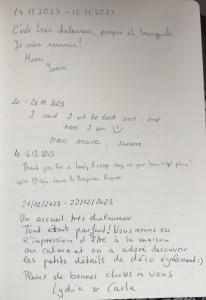 14.11.2023 - 15.11.2023
C'est très chaleureux, propre et tranquille
Je vais revenir!
Merci
20 - 22.11.2023
I said I will be back soon - and
here I am ☺
Merci encore,
4.-6.12.2023
Thank you for a lovely & cosy stay at your beautiful place!
With
21/12/2023 - 22/12/2023
Un accueil très chaleureux
Tout était parfait! Nous avons eu
l'impression d'être à la maison
au calme et on a adoré découvrir
les petits détails de déco également :)
Pleins de bonnes choses à vous
Lydia & Carla